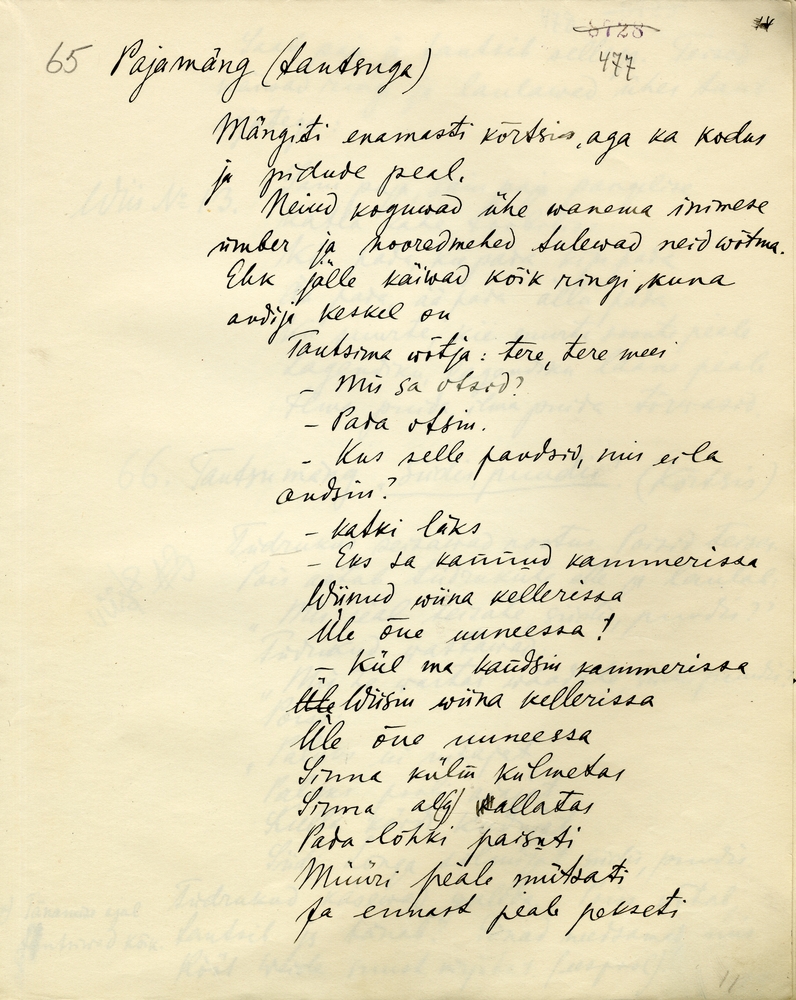 8128
477
65 Pajamäng (tantsuga)
Mängiti enamasti kõrtsis, aga ka kodus
ja pidude peal.
Neiud koguwad ühe wanema inimese
ümber ja nooredmehed tulewad neid wõtma.
Ehk jälle käiwad kõik ringi, kuna
andija keskel on
Tantsima wõtja: tere, tere mees
– Mis sa otsid?
– Pada otsin.
– Kus selle pandsid, mis eila
andsin?
– Katki läks
– Eks sa kannud kammerissa
Wiinud wiina kellerissa
Üle õue uuneessa!
– Kül ma kandsin kammerissa
Üle Wiisin wiina kellerissa
Üle õue uuneessa
Sinna külm külmetas
Sinna all
Pada lõhki paisuti
Müüri peale mütsati
Ja ennast peale pekseti
11